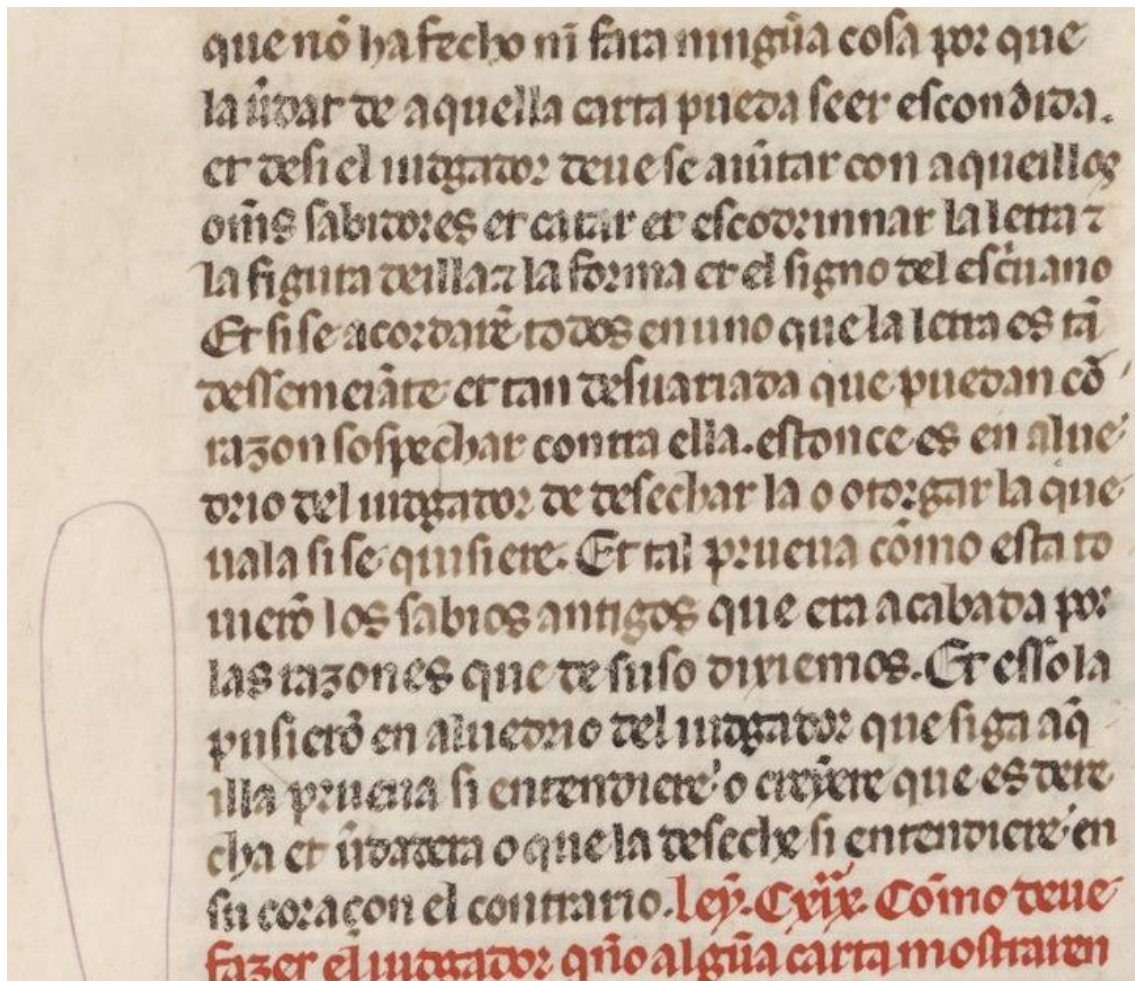 que nō ha fecho nī fara ningūa cosa por que
la ūdat de aquella carta pueda seer escondida.
et desi el iudgador deue se aiūtar con aqueillos
omēs sabidores et catar et escodrinnar la letra ⁊
la figura deilla ⁊ la forma et el signo del escͥuano
Et si se acordarē todos en uno que la letra es tā
dessemeiāte et tan desuariada que puedan cō
razon sospechar contra ella. estonce es en alue
drio del iudgador de desechar la o otorgar la que
uala si se quisiere. Et tal prueua cōmo esta to
uierō los sabios antigos que era acabada por
las razones que de suso dixiemos. Et esso la
pusierō en aluedrio del iudgador que siga aq̄
illa prueua si entendiere o creyere que es dere
cha et ūdadera o que la deseche si entendiere en
su coraçon el contrario. ley. Cxix. Cōmo deue
fazer el iudgador qn̄o algūa carta mostraren